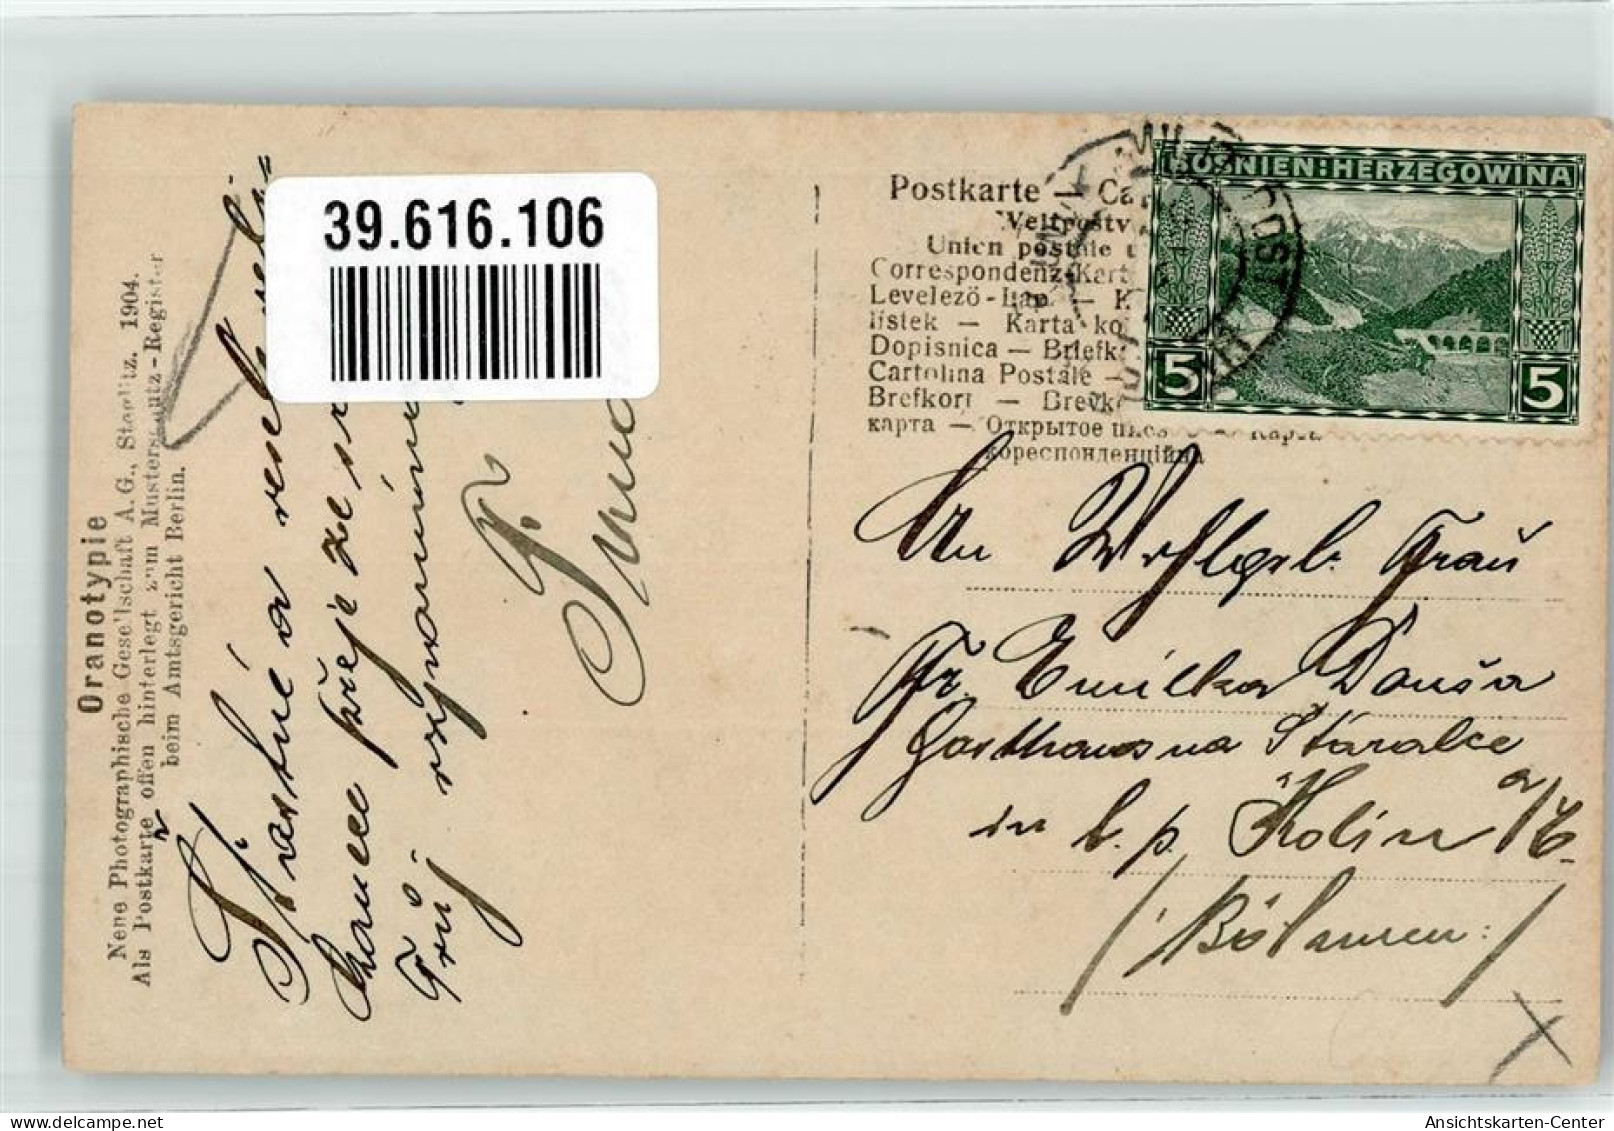 39.616.106
Oranotypie
Neue Photographische Gesellschaft A.G., Steglitz. 1904.
Als Postkarte offen hinterlegt zum Musterschutz-Register
beim Amtsgericht Berlin.
Šťastné a veselé
přeje ze
Postkarte — Ca
Weltpostv
Union postale u
Correspondenz-Kart
Levelező-Lap. — K
lístek — Karta ko
Dopisnica — Briefk
Cartolina Postale —
Brefkort — Brevk
карта — Открытое
кореспонденційна
BOSNIEN:HERZEGOWINA
5 5
MILIT. POST
An Wohlgeb. Frau
Fr Emilka Douša
Gasthaus na Staralce
in b. p. Kolín a/E.
/Böhmen:/
Ansichtskarten-Center